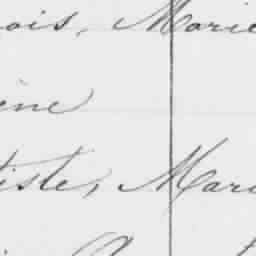 ois, Marie
ine
tiste, Mari